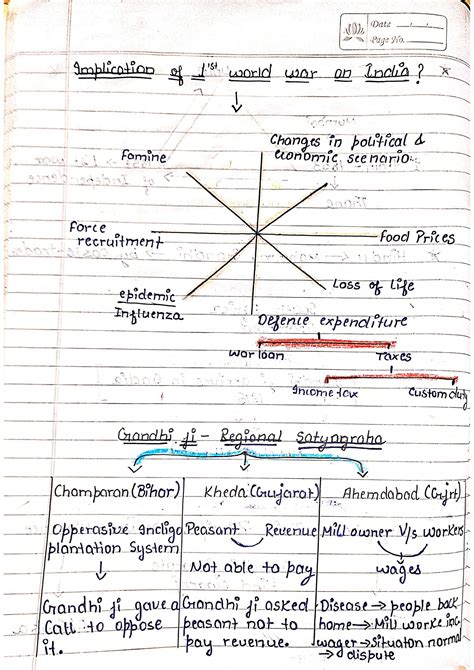 Date
Page No.
Implication of 1st world war on India?
Changes in political &
economic scenario
Famine
Force
recruitment
Food Prices
Loss of Life
epidemic
Influenza
Defence expenditure
War loan Taxes
Income tax Custom duty
Gandhi ji - Regional Satyagraha
Champaran (Bihar) Kheda (Gujarat) Ahemdabad (Gjrt)
Opperasive Indigo Peasant Revenue Mill owner V/s workers
plantation System
wages
Not able to pay
Gandhi ji gave a Gandhi ji asked Disease → people back
Call to oppose peasant not to home → Mill worke inc
it. pay revenue. wager → Situaton normal
→ dispute